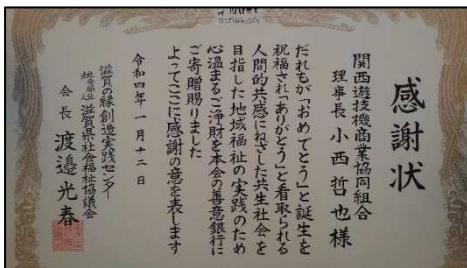 感謝状
関西遊技機商業協同組合
理事長 小西哲也 様
だれもが「おめでとう」と誕生を
祝福され「ありがとう」と看取られる
人間的共感にねざした共生社会を
目指した地域福祉の実践のため
心温まるご浄財を本会の善意銀行に
ご寄贈賜りました
よってここに感謝の意を表します
令和四年一月十二日
滋賀の縁創造実践センター
社会福祉法人 滋賀県社会福祉協議会
会長 渡邉光春